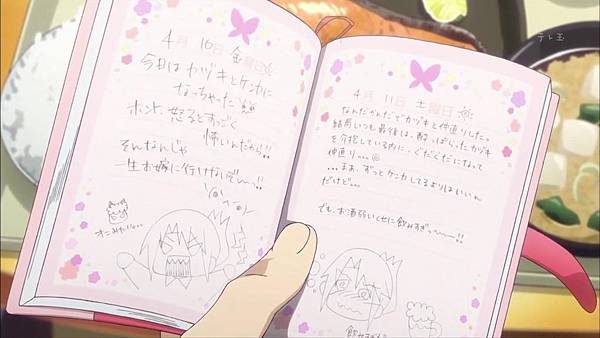 テレ玉
4月 10日 金曜日
今日はカヅキとケンカに
なっちゃった
ホント、怒るとすっごく
怖いんだから!!
そんなんじゃ
一生お嫁に行けないぞ〜!!
オニみたい…
4月 11日 土曜日
なんだかんだでカヅキと仲直りした。
結局いつも最後は、酔っぱらったカヅキ
を介抱している内に、ぐだぐだになって
仲直り…
…まぁ、ずっとケンカしてるよりはいいん
だけど…
でも、お酒弱いくせに飲みすぎ〜〜!!
飲みすぎ